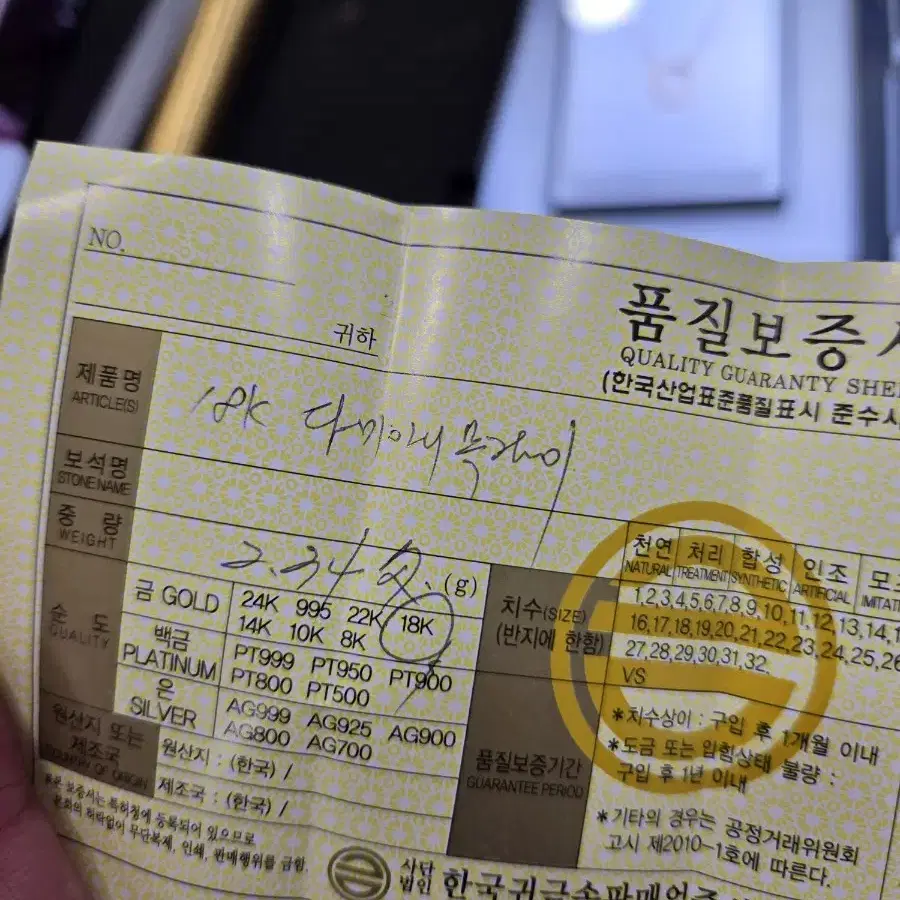 NO.
귀하
품질보증
QUALITY GUARANTY SHE
(한국산업표준품질표시 준수사
제품명
ARTICLE(S)
18K
보석명
STONE NAME
중 량
WEIGHT
2.34 (g)
순 도
QUALITY
금 GOLD
24K 995 22K 18K
14K 10K 8K
백금
PLATINUM
PT999 PT950 PT900
PT800 PT500
은
SILVER
AG999 AG925 AG900
AG800 AG700
원산지 또는
제조국
COUNTRY OF ORIGIN
원산지 : (한국) /
제조국 : (한국) /
치수(SIZE)
(반지에 한함)
천연 처리 합성 인조 모조
NATURAL TREATMENT SYNTHETIC ARTIFICIAL IMITATI
1,2,3,4,5,6,7,8,9,10,11,12,13,14,1
16,17,18,19,20,21,22,23,24,25,26
27,28,29,30,31,32.
VS
품질보증기간
GUARANTEE PERIOD
*치수상이 : 구입 후 1개월 이내
*도금 또는 입힘상태 불량 :
구입 후 1년 이내
*기타의 경우는 공정거래위원회
고시 제2010-1호에 따른다.
※본 보증서는 특허청에 등록되어 있으므로
본회의 허락없이 무단복제, 인쇄, 판매행위를 금함.
사단
법인 한국귀금속판매업중